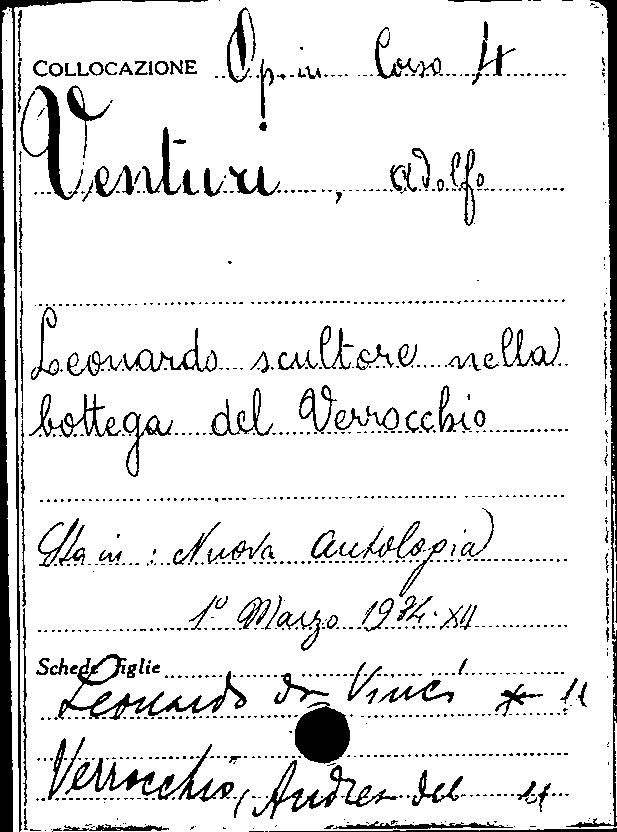 COLLOCAZIONE Op. in Corso 4
Venturi, Adolfo
Leonardo scultore nella
bottega del Verrocchio
Sta in: Nuova Antologia
1º Marzo 1934-XII
Schede figlie
Leonardo da Vinci *
Verrocchio, Andrea del